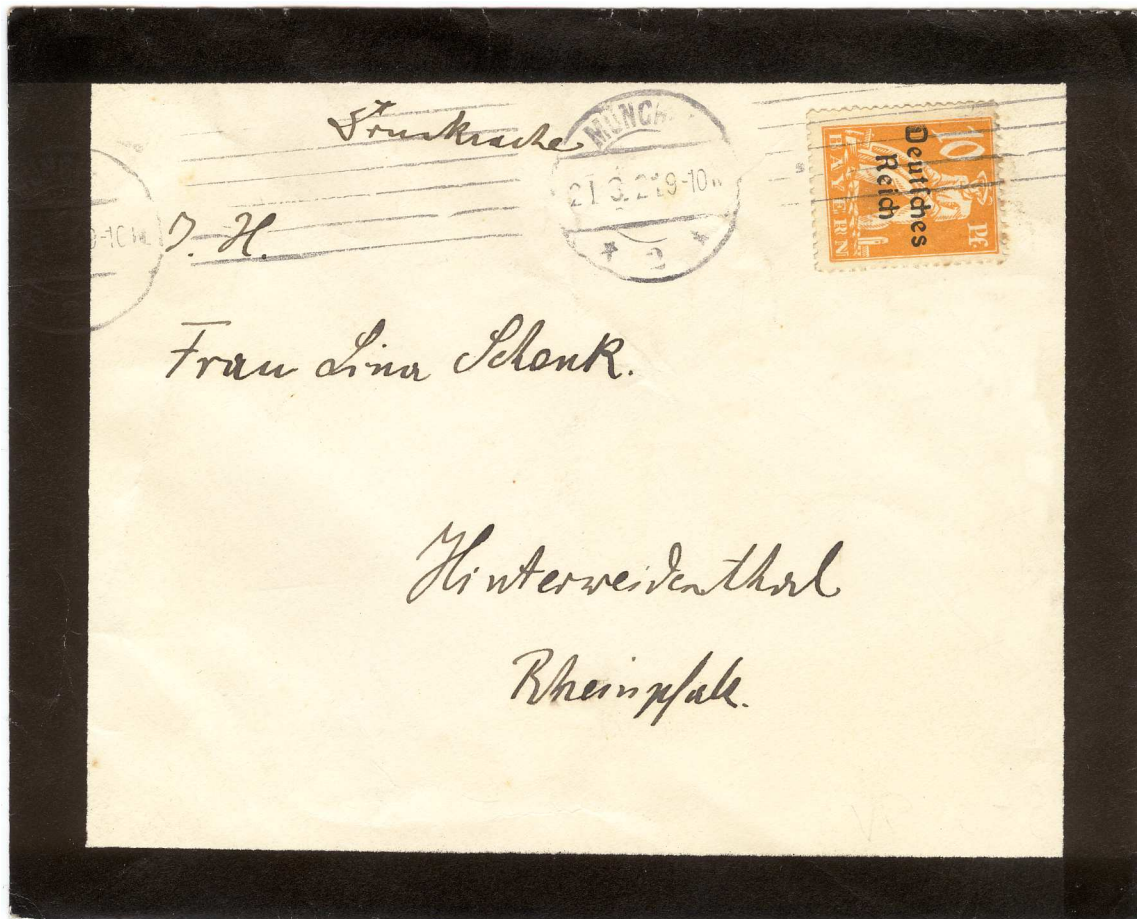 Drucksache
MÜNCH
21.3.21 9-10
* 2 *
10 Pf
BAYERN
Deutsches
Reich
I. H.
Frau Lina Schenk.
Hinterweidenthal
Rheinpfalz.